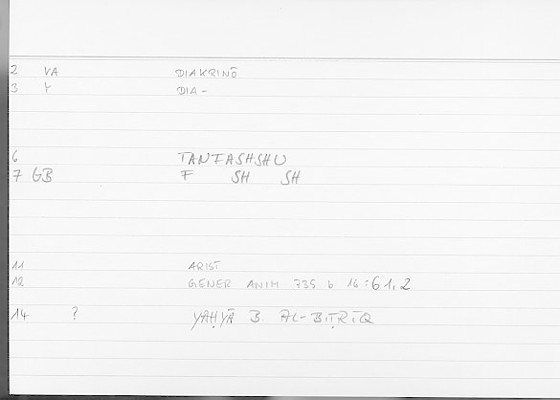 2 VA DIAKRINŌ
3 Y DIA-
6 TANFASHSHU
7 GB F SH SH
11 ARIST
12 GENER ANIM 735 b 16:61,2
14 ? YAḤYĀ B. AL-BIṬRĪQ